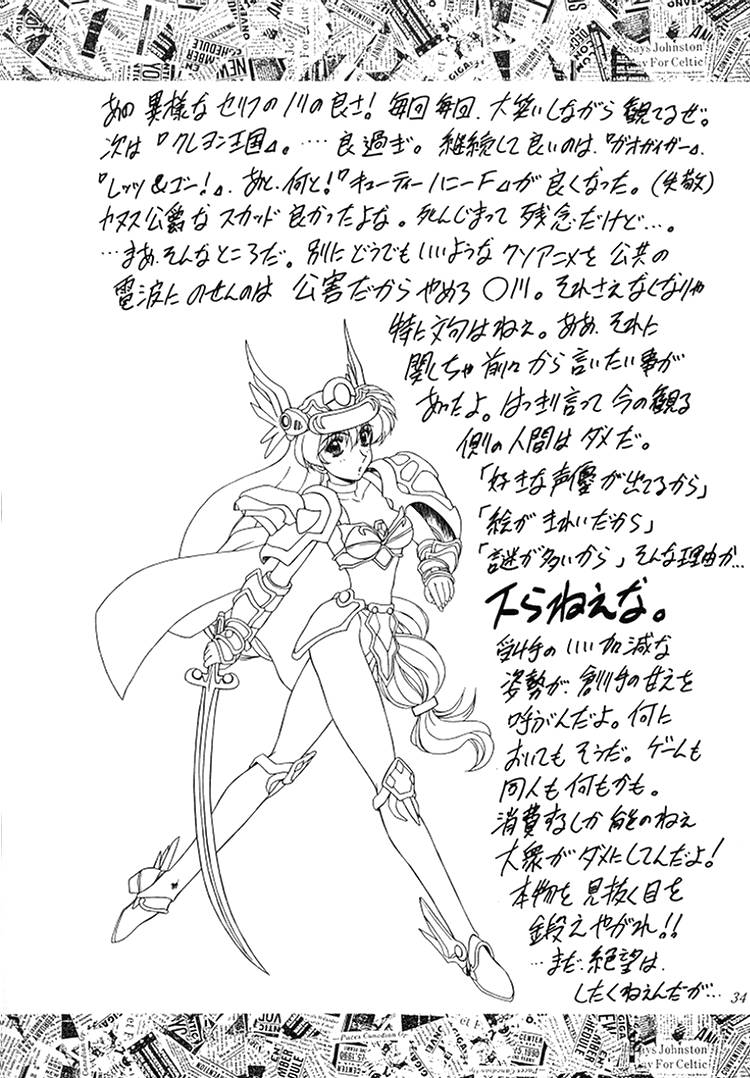 あの異様なセリフのノリの良さ!毎回毎回、大笑いしながら観てるぜ。
次は『クレヨン王国』。…良過ぎ。継続して良いのは、『ガオガイガー』、
『レッツ&ゴー!』、あと、何と!『キューティーハニーF』が良くなった。(失敬)
カヌス公爵なスカッド良かったよな。死んじまって残念だけど…。
…まあ、そんなところだ。別にどうでもいいようなクソアニメを公共の
電波にのせんのは公害だからやめろ〇川。それさえなくなりゃ
特に文句はねぇ。ああ、それに
関しちゃ前々から言いたい事が
あったよ。はっきり言って今の観る
側の人間はダメだ。
「好きな声優が出てるから」
「絵がきれいだから」
「謎が多いから」そんな理由か…
下らねえな。
受け手のいい加減な
姿勢が、創り手の甘えを
呼ぶんだよ。何に
おいてもそうだ。ゲームも
同人も何もかも。
消費するしか能のねぇ
大衆がダメにしてんだよ!
本物を見抜く目を
鍛えやがれ!!
…まだ、絶望は
したくねぇんだが…
34
Says Johnston
ay For Celtic
Says Johnston
ay For Celtic